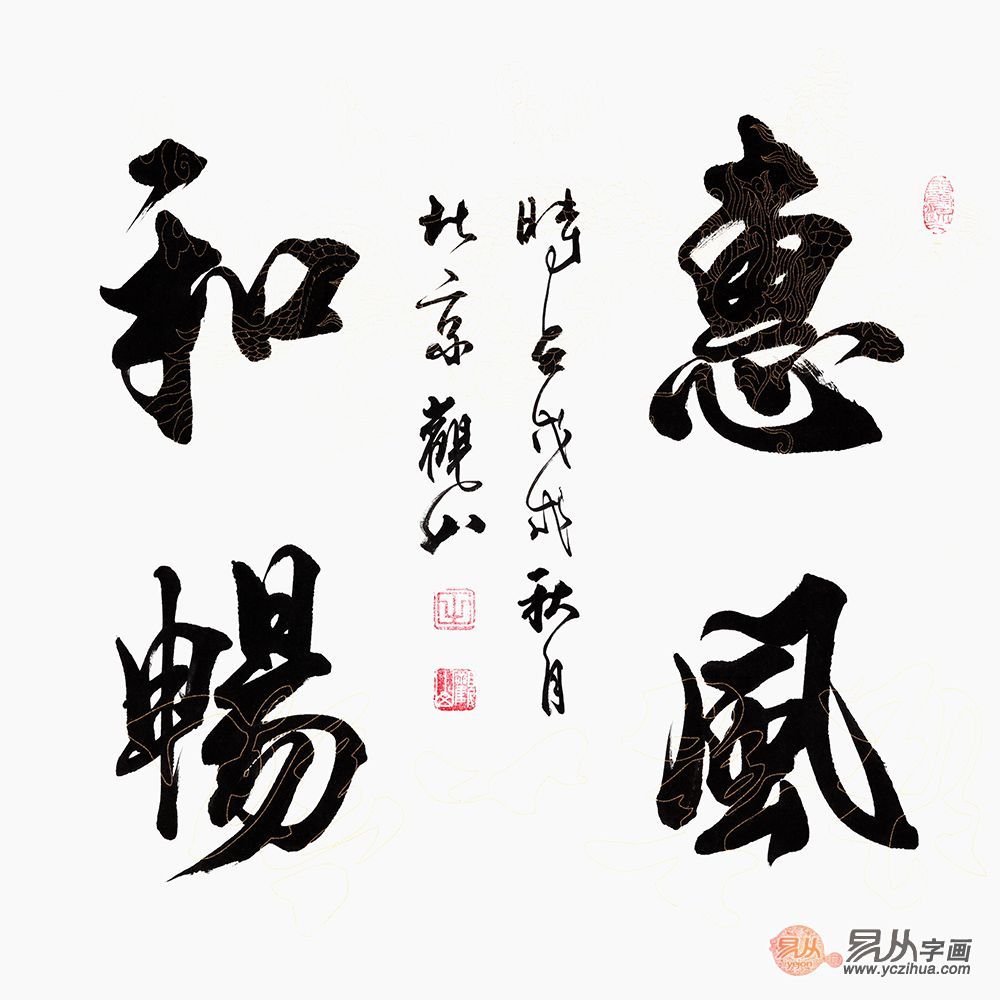 惠風
和暢
時在戊戌秋月
北京觀山
易从
yicon
易从字画
www.yczihua.com